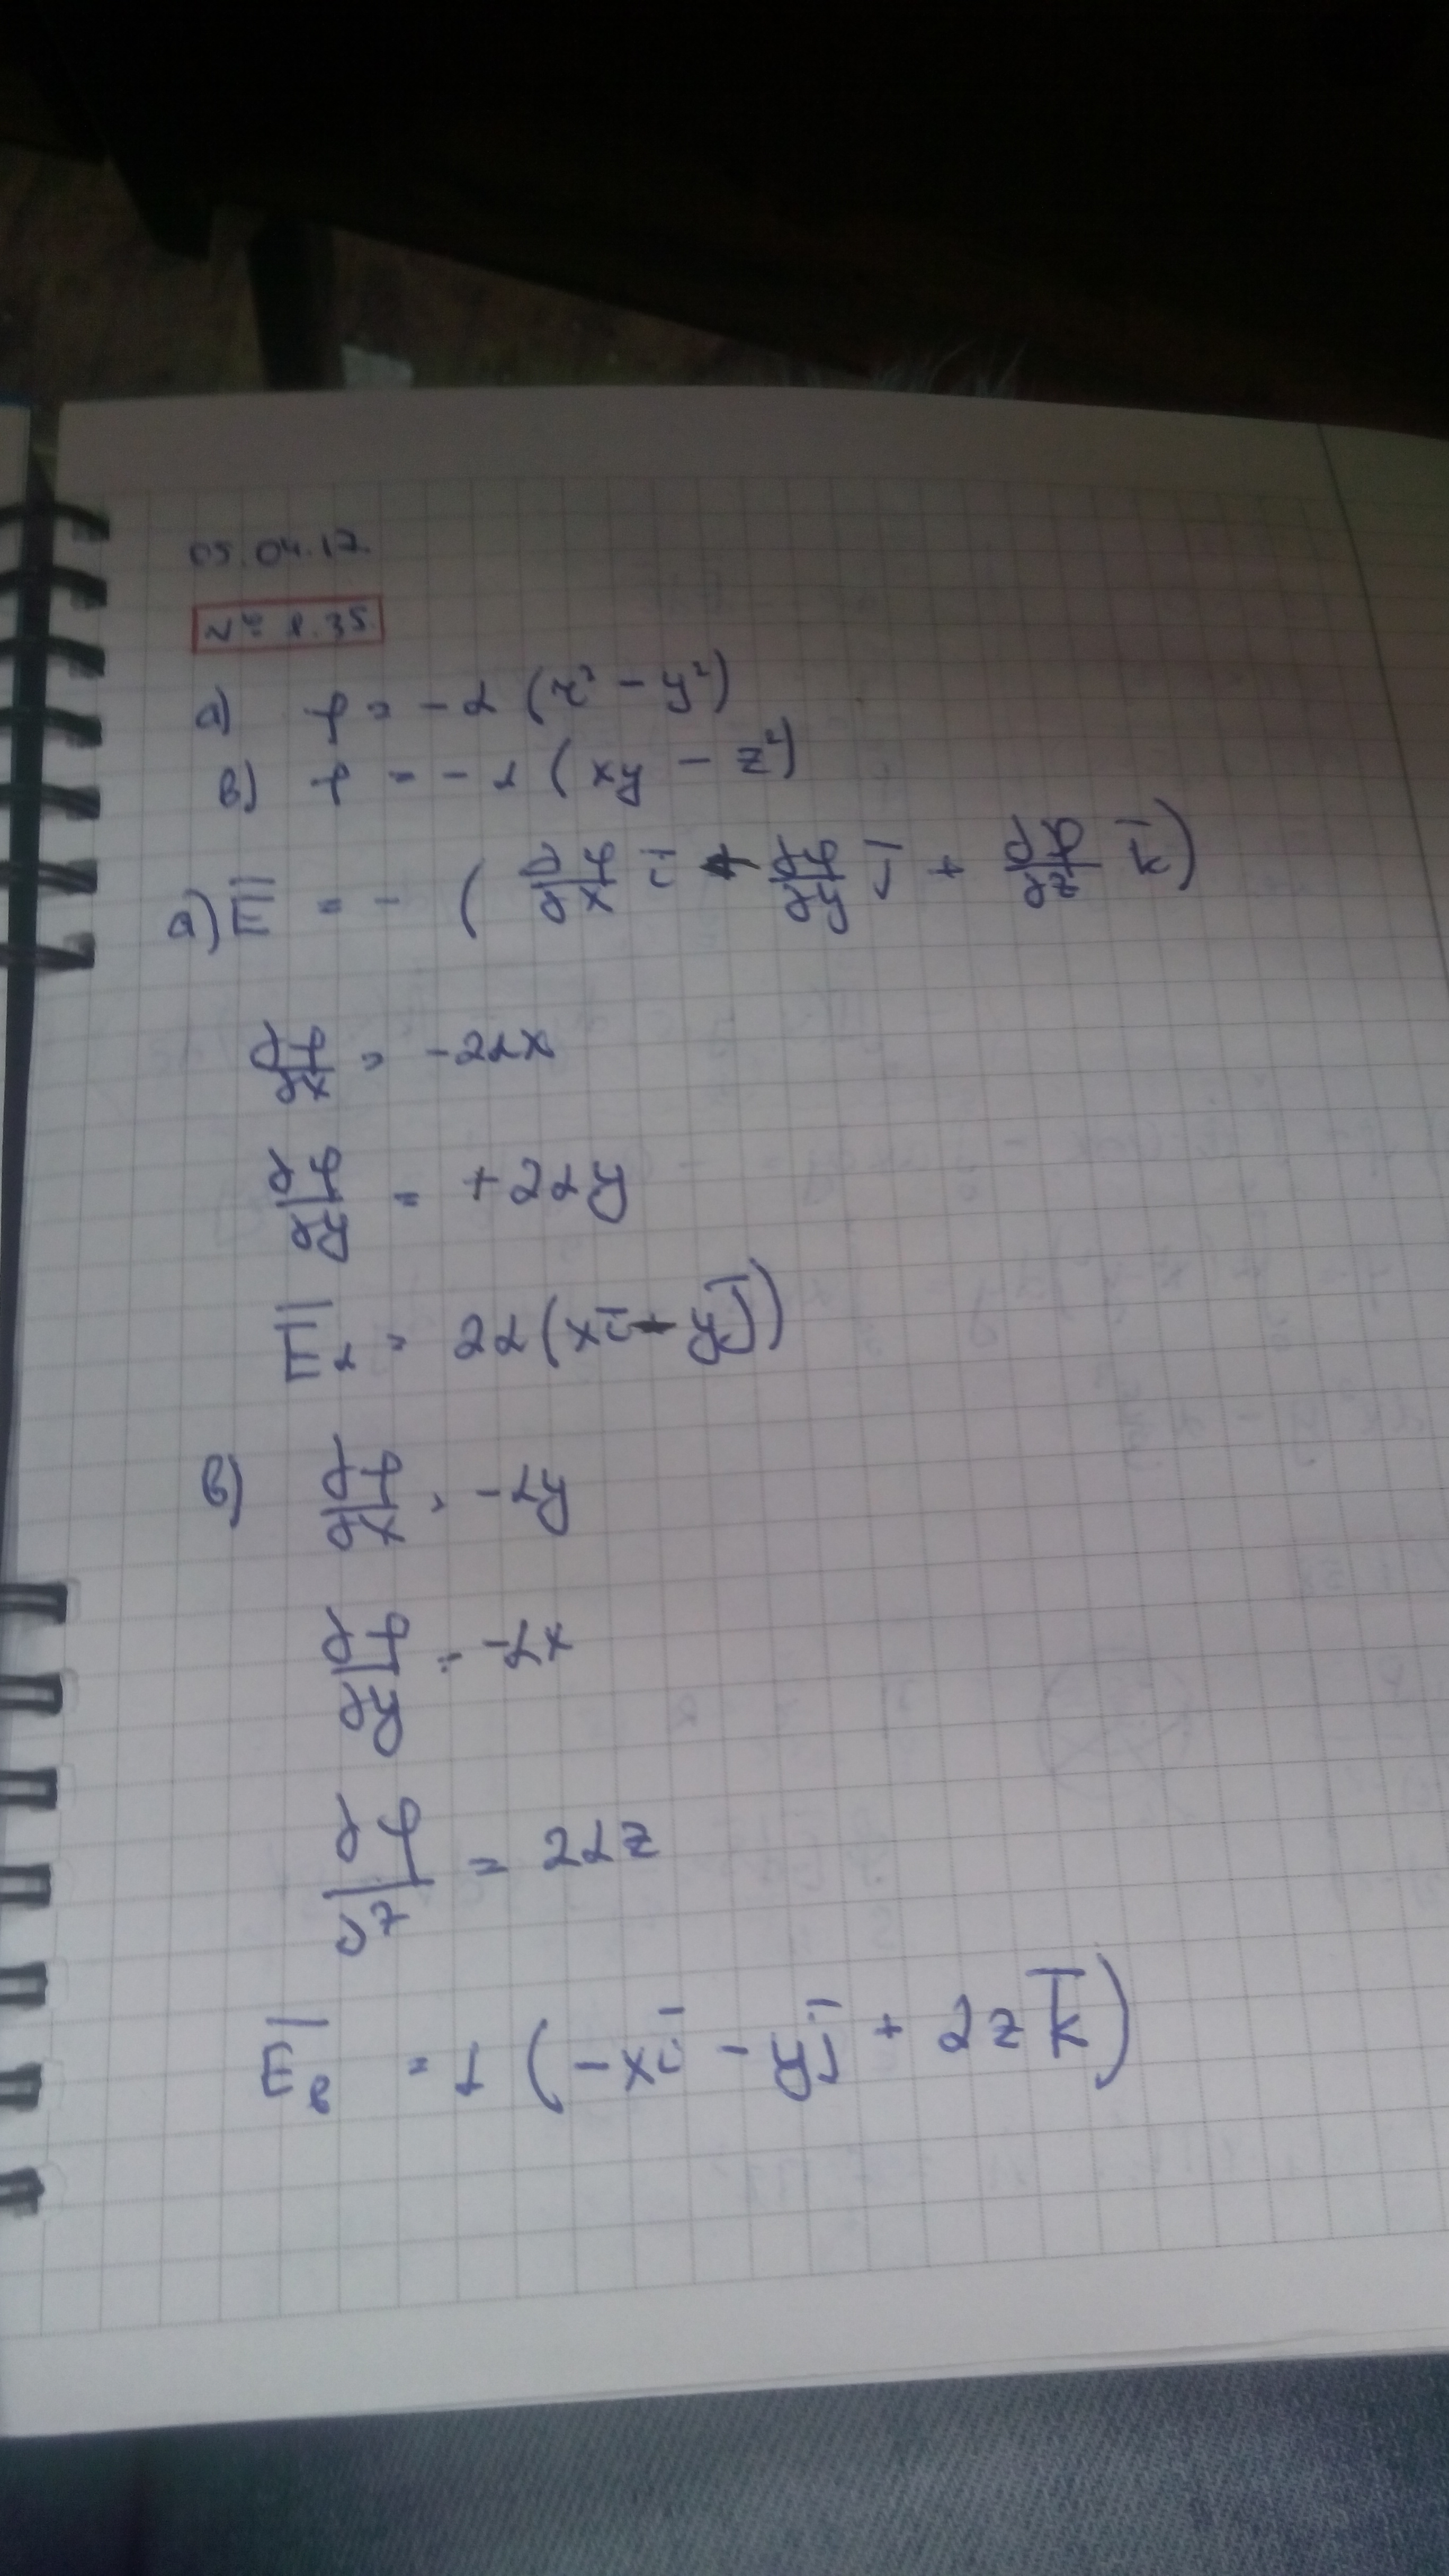 05.04.17.
№ 8.35.
a) φ = -α (x² - y²)
в) φ = -α (xy - z²)
a) E̅ = - (∂φ/∂x i̅ + ∂φ/∂y j̅ + ∂φ/∂z k̅)
∂φ/∂x = -2αx
∂φ/∂y = +2αy
E̅α = 2α(xi̅ - yj̅)
в) ∂φ/∂x = -αy
∂φ/∂y = -αx
∂φ/∂z = 2αz
E̅в = α (-xi̅ - yj̅ + 2zk̅)